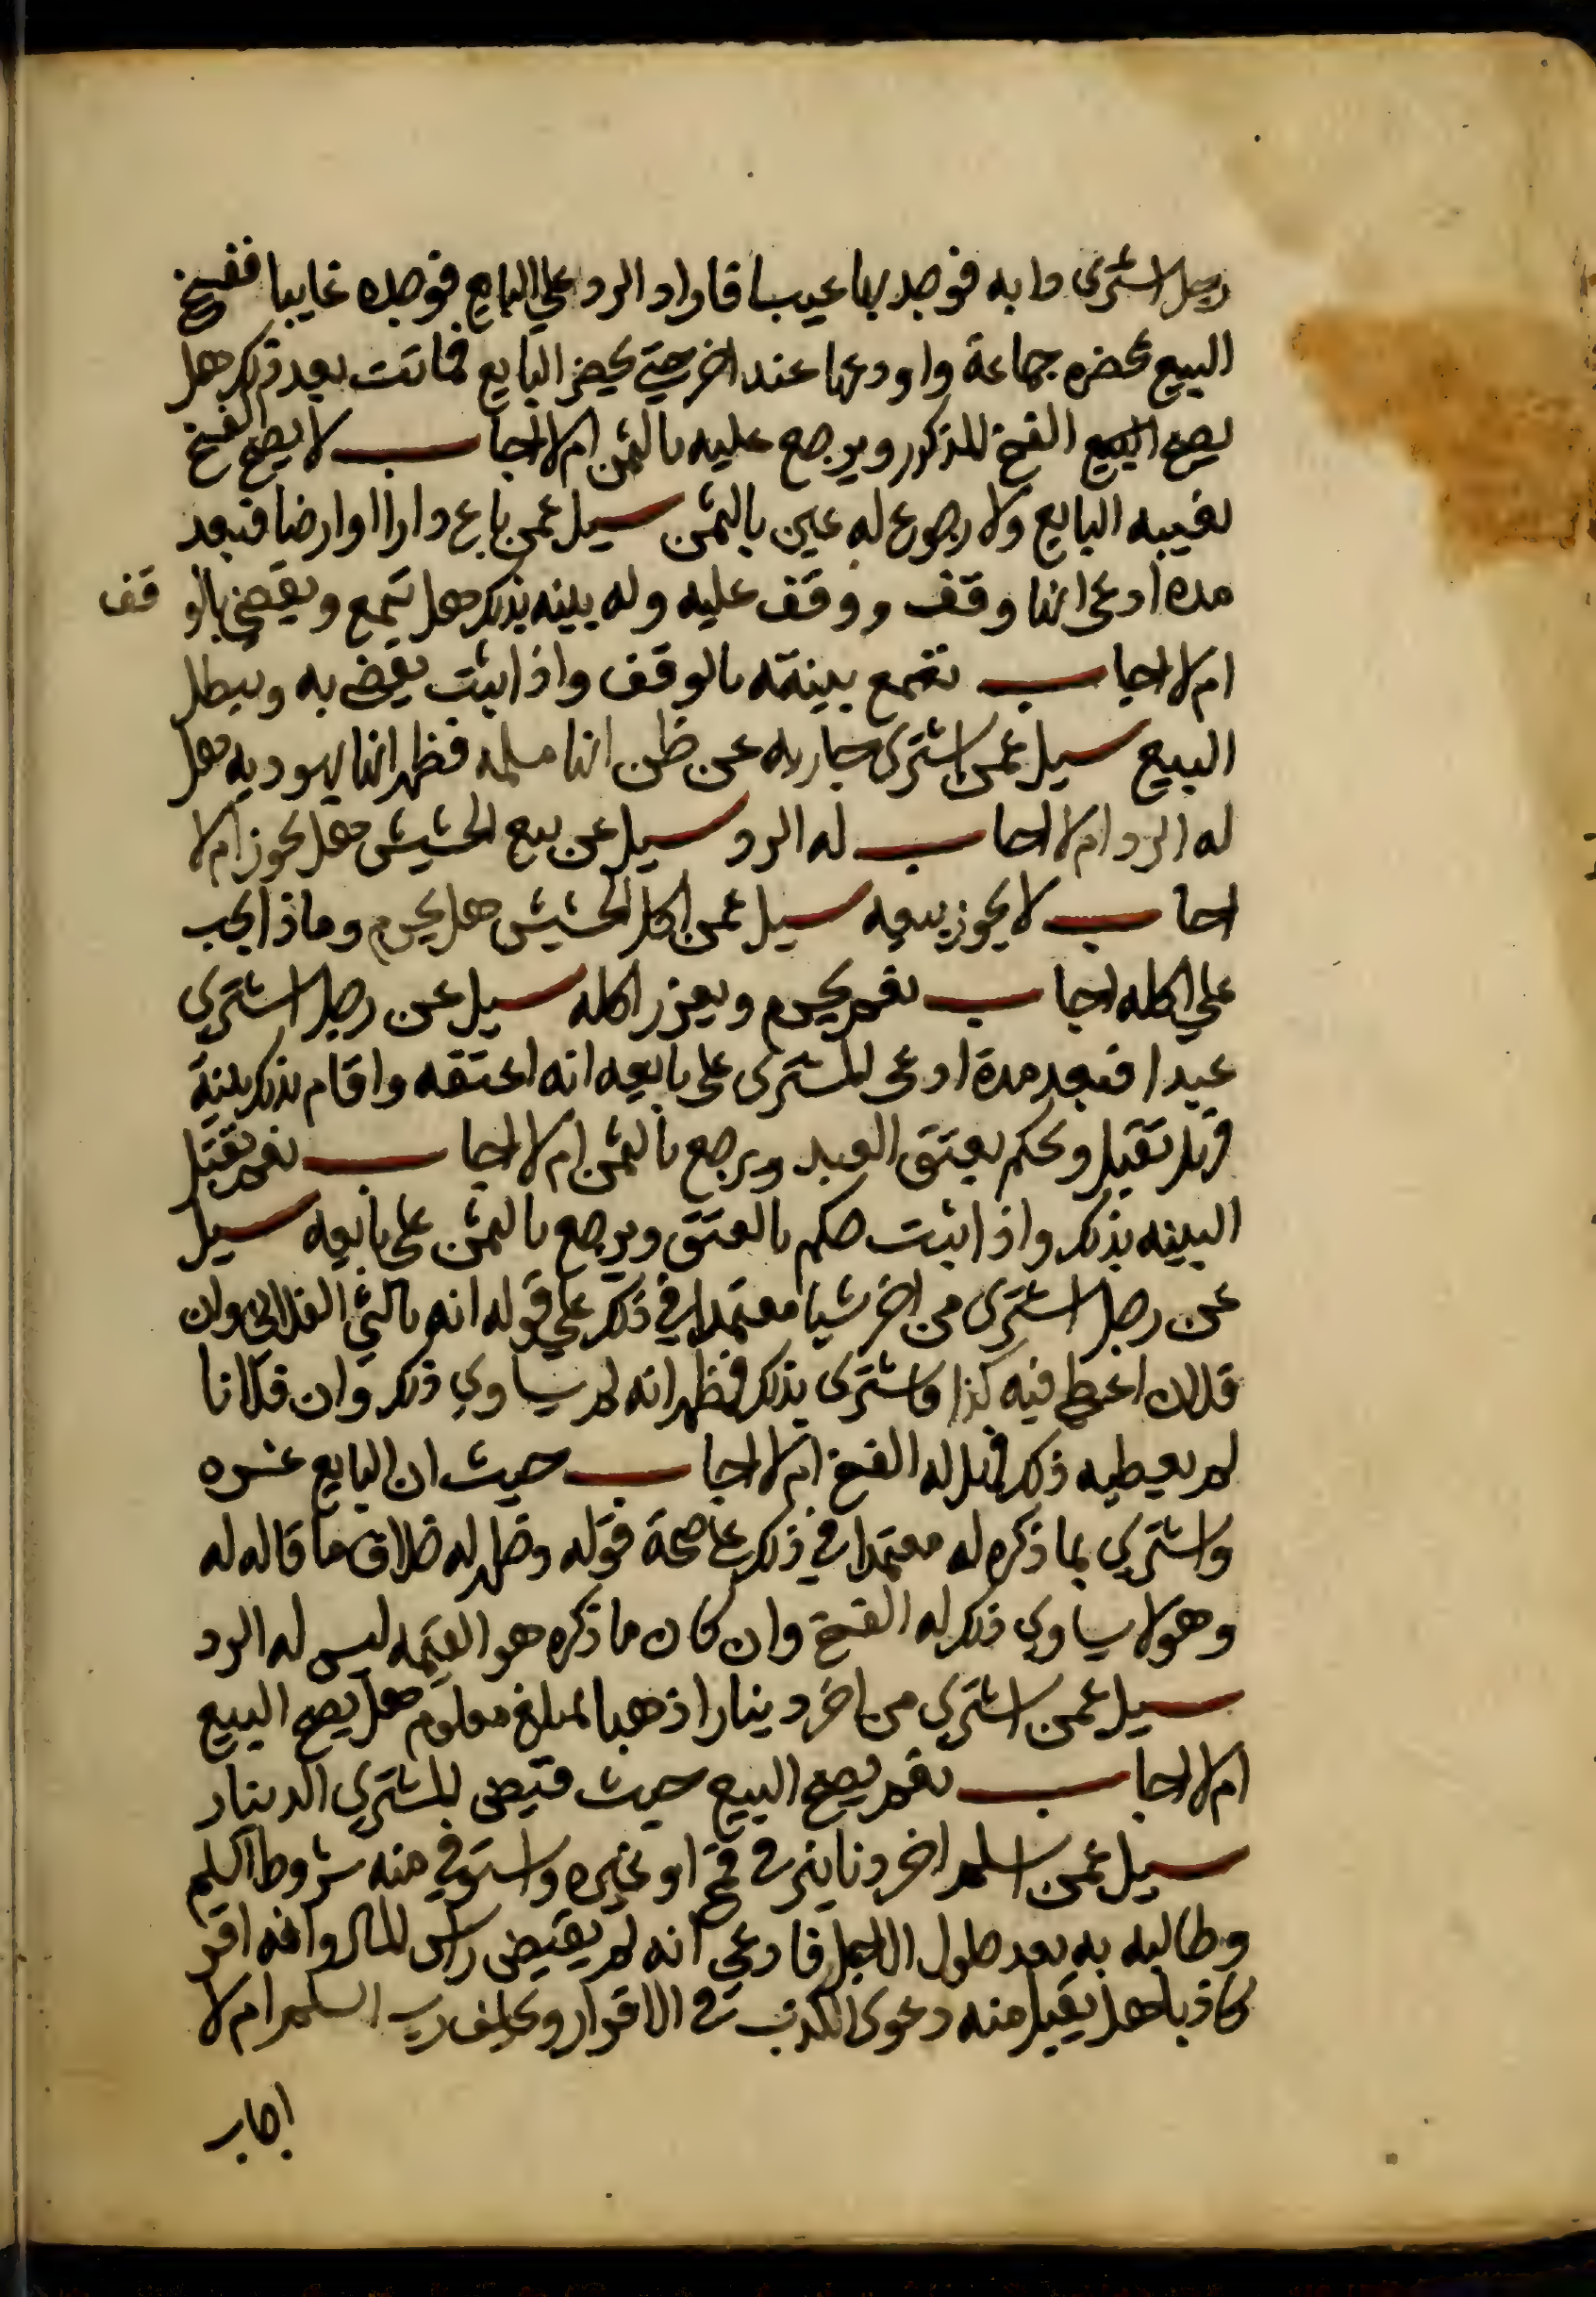 رجل اشترى دابه فوجد بها عيبا فاراد الرد علي البايع فوجده غايبا ففسخ
البيع بحضره جماعة واودعها عند اخر حتي يحضر البايع فماتت بعد ذلك هل
يصح البيع الفسخ المذكور ويرجع عليه بالثمن ام لا اجاب لا يصح الفسخ
لغيبه البايع ولا رجوع له عين بالثمن سيل عمن باع دارا او ارضا فبعد
مده ادعى انها وقف ووقف عليه وله بينه بذلك هل تسمع ويقضي بالوقف
ام لا اجاب تسمع بينته بالوقف واذا ثبت يقضى به ويبطل
البيع سيل عمن اشترى جاريه عن ظن انها مسلمه فظهر انها يهوديه هل
له الرد ام لا اجاب له الرد سيل عن بيع الحشيش هل يجوز ام لا
اجاب لا يجوز بيعه سيل عمن اكل الحشيش هل يحرم وماذا يجب
علي اكله اجاب نعم يحرم ويعزر اكله سيل عن رجل اشتري
عبدا فبعد مدة ادعى المشترى على بايعه انه اعتقه واقام بذلك بينة
فهل تقبل ويحكم بعتق العبد ويرجع بالثمن ام لا اجاب نعم تقبل
البينه بذلك واذا ثبت حكم بالعتق ويرجع بالثمن على بايعه سيل
عن رجل اشترى من اخر شيا معتمدا في ذلك علي قوله انه بالثمن الفلاني وان
فلان اعطي فيه كذا فاشترى بذلك فظهر انه لم يساوي ذلك وان فلانا
لم يعطيه ذلك فهل له الفسخ ام لا اجاب حيث ان البايع غره
واشتري بما ذكره له معتمدا في ذلك على صحة قوله وظهر له خلاف ما قاله له
وهو لا يساوي ذلك له الفسخ وان كان ما ذكره هو القيمه ليس له الرد
سيل عمن اشتري من اخر دينارا ذهبا بمبلغ معلوم هل يصح البيع
ام لا اجاب نعم يصح البيع حيث قبض المشتري الدينار
سيل عمن اسلم اخر دنانير في قمح او غيره واستوفي منه شروط السلم
وطالبه به بعد حلول الاجل فادعي انه لم يقبض راس المال وانه اقر
كاذبا هل يقبل منه دعوى الكذب في الاقرار ويحلف رب السلم ام لا
اجاب